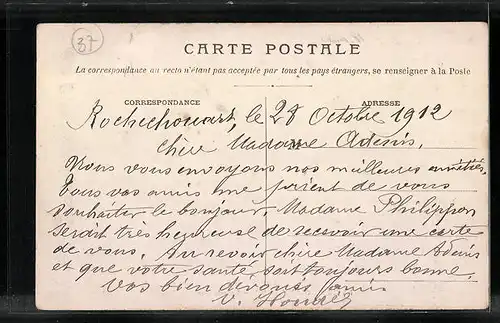 37
CARTE POSTALE
La correspondance au recto n'étant pas acceptée par tous les pays étrangers, se renseigner à la Poste
CORRESPONDANCE
ADRESSE
Rochechouart, le 28 Octobre 1912
chère Madame Adenis,
Nous vous envoyons nos meilleures amitiés.
Tous vos amis me prient de vous
souhaiter le bonjour, Madame Philippon
serait très heureuse de recevoir une carte
de vous. Au revoir chère Madame Adenis
et que votre santé soit toujours bonne.
Vos bien dévoués amis
V.